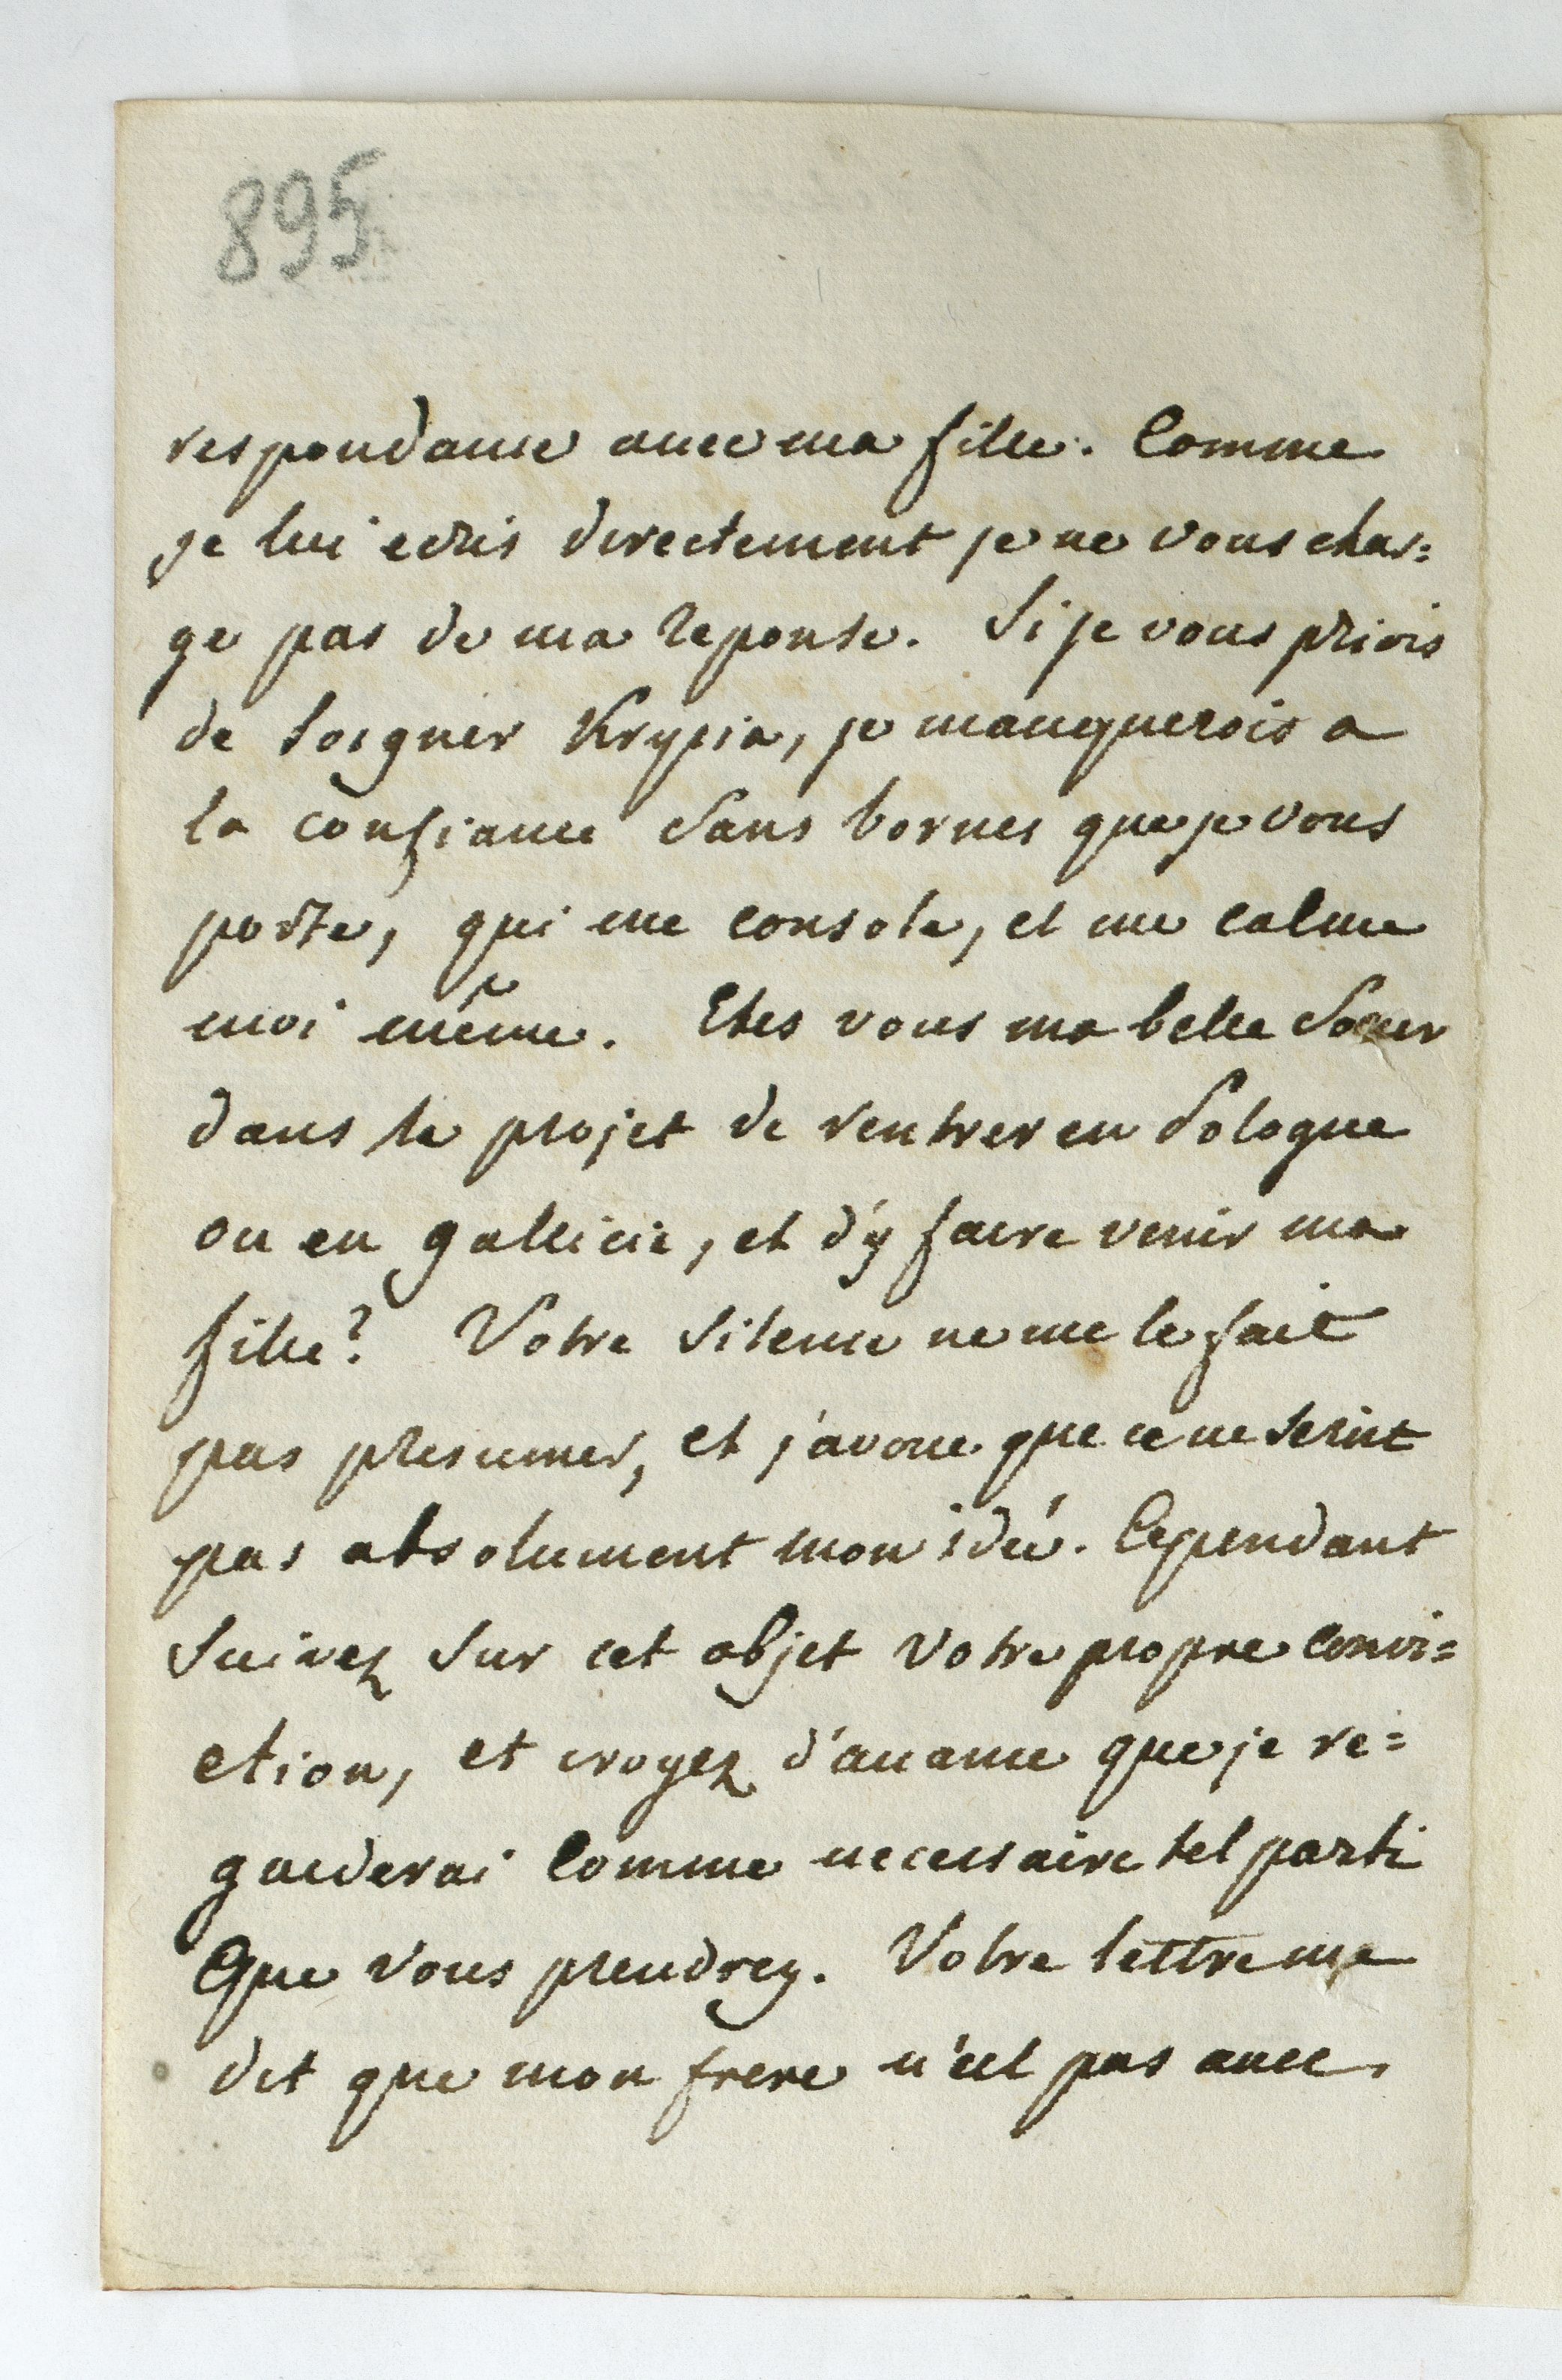 895
respondance avec ma fille. Comme
je lui ecris directement je ne vous char=
ge pas de ma reponse. Si je vous priois
de soigner Krysia, je manquerois a
la confiance sans bornes que je vous
porte, qui me console, et me calme
moi même. Etes vous ma belle Soeur
dans le projet de rentrer en Pologne
ou en gallicie, et d'y faire venir ma
fille? Votre silence ne me le fait
pas presumer, et j'avoue que ce ne seroit
pas absolument mon idée. Cependant
suivez sur cet objet votre propre convi=
ction, et croyez d'avance que je re=
garderai comme necessaire tel parti
que vous prendrez. Votre lettre me
dit que mon frere n'est pas avec